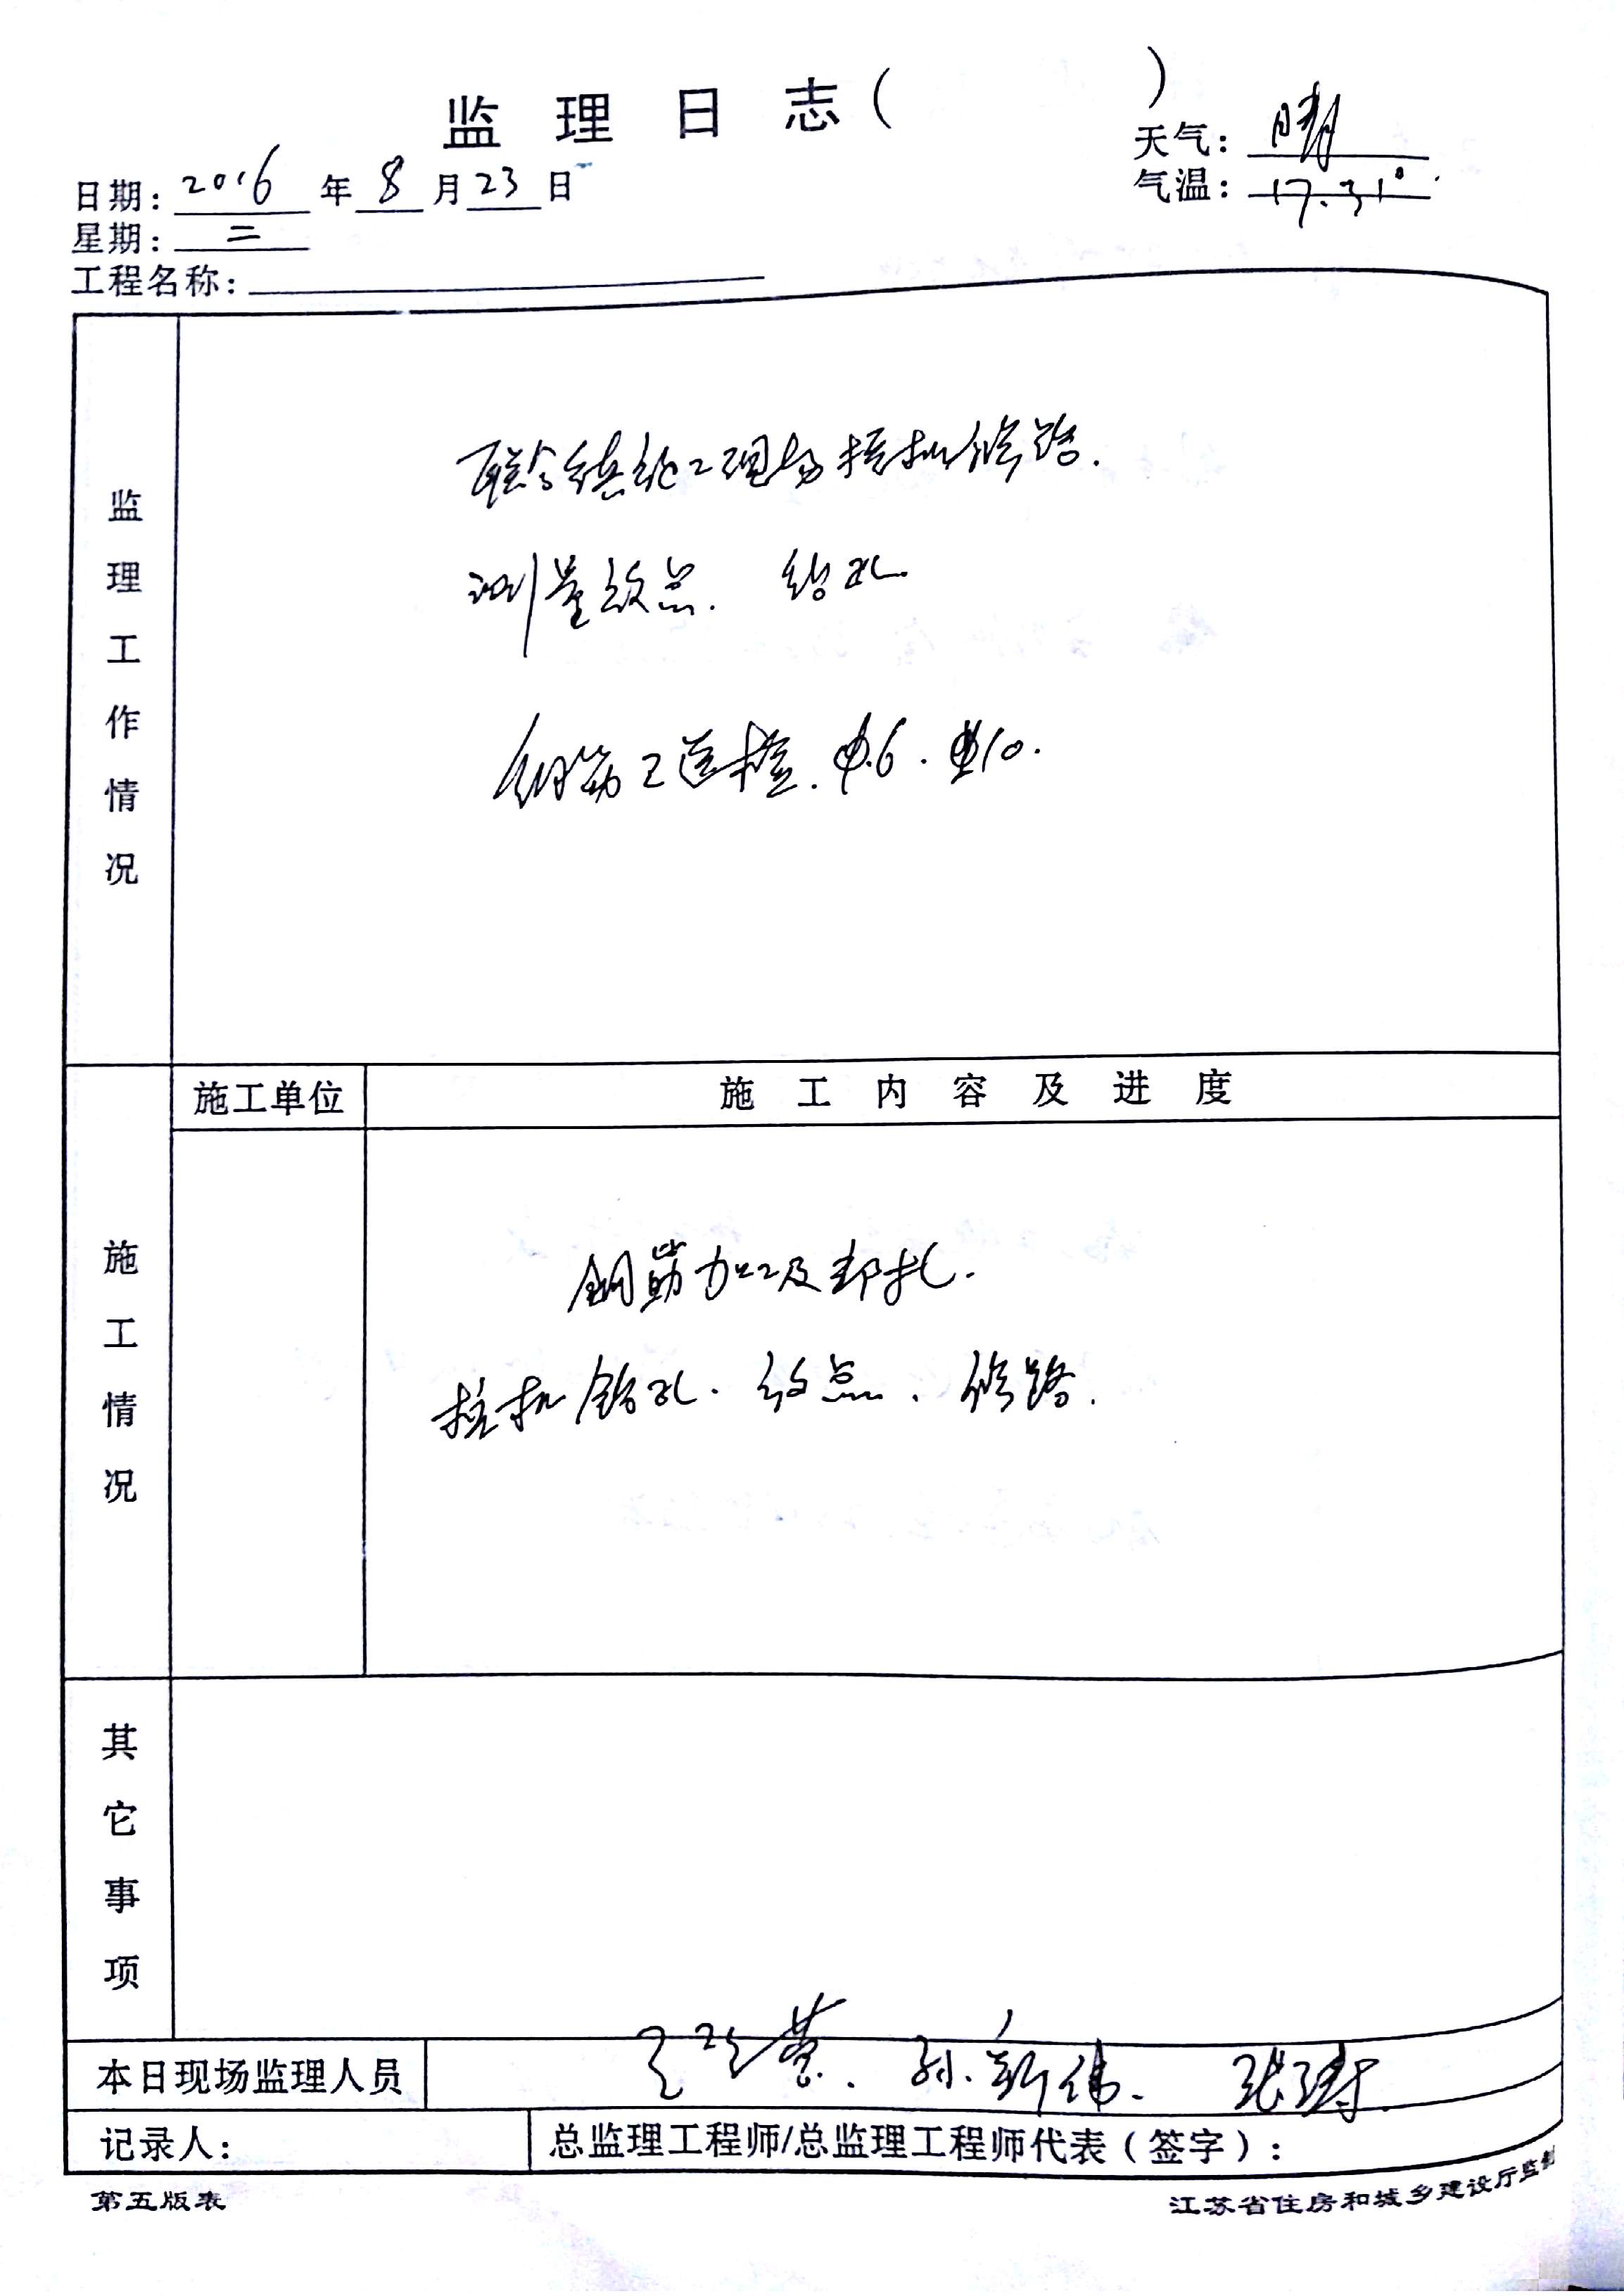 监理日志（ ）
天气：晴
日期：2016年8月23日
气温：17.31°.
星期：二
工程名称：
监理工作情况
现场 桩机修路.
测量放点. 钻孔
钢筋 送检. ф6. ф10.
施工单位
施工内容及进度
施工情况
钢筋加工及邦扎.
桩机钻孔. 放点. 修路.
其它事项
本日现场监理人员
孙新伟. 张涛.
记录人：
总监理工程师/总监理工程师代表（签字）：
第五版表
江苏省住房和城乡建设厅监制